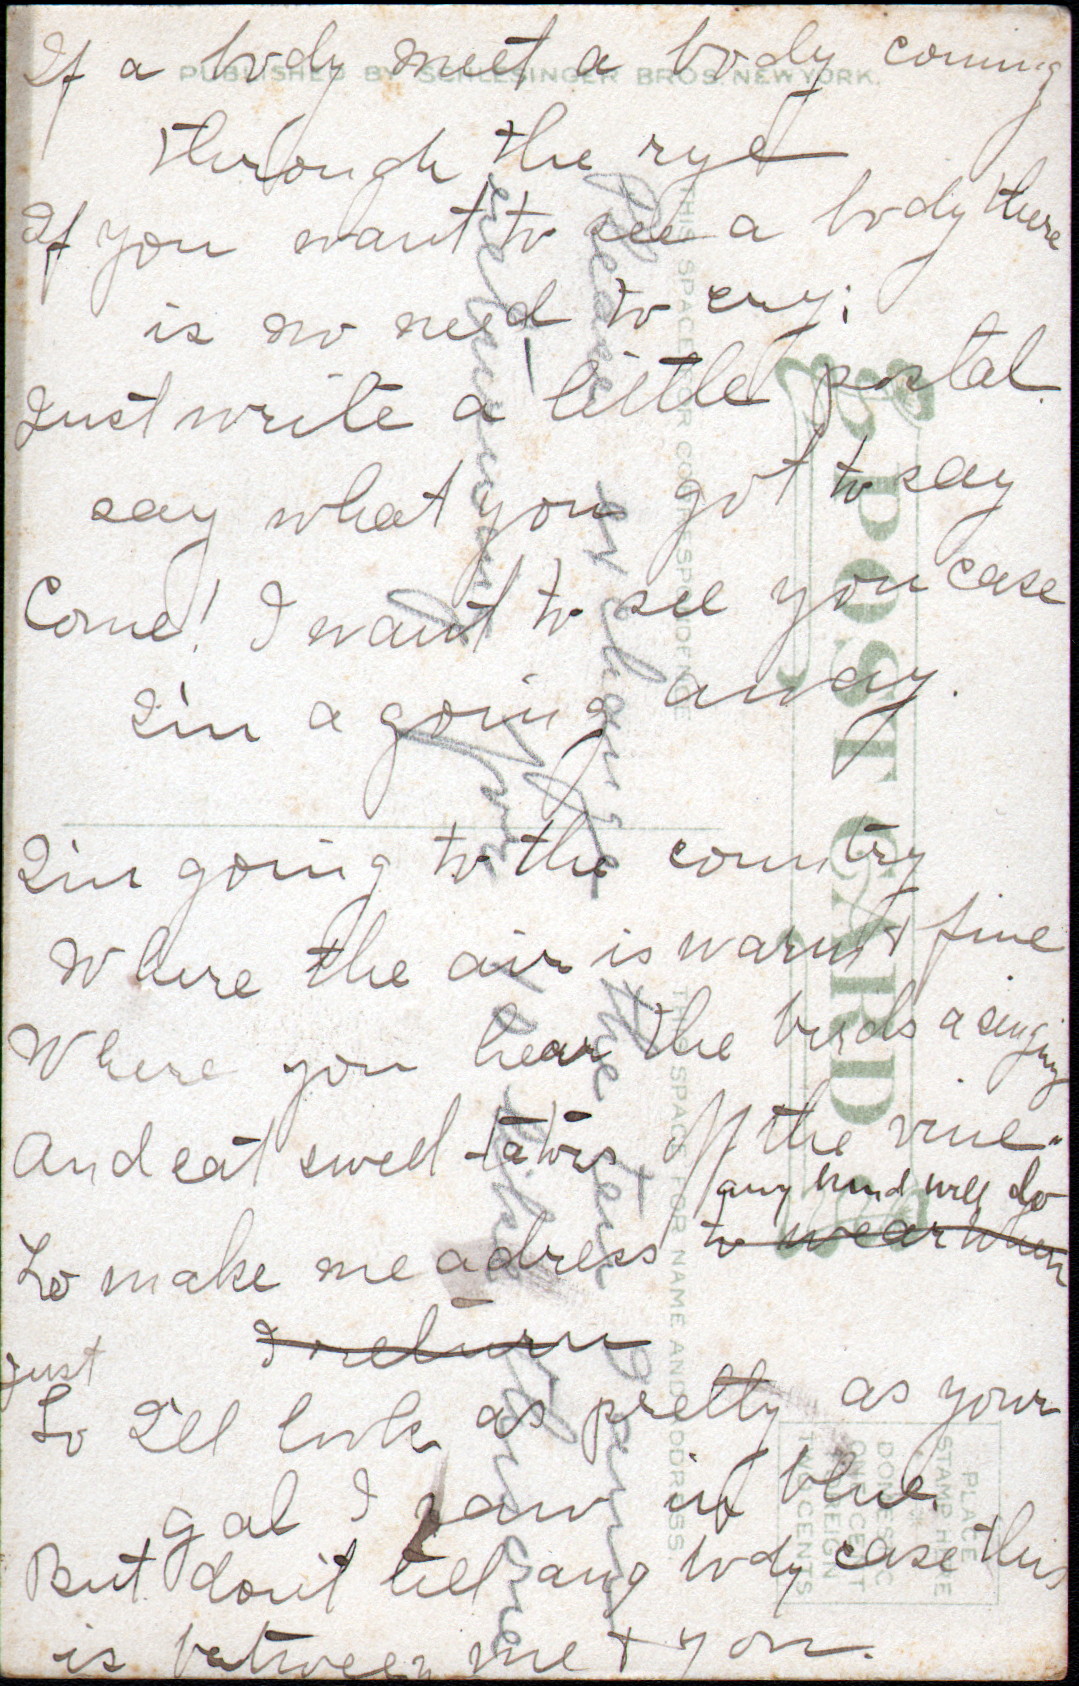 If a body meet a body coming
through the rye
If you want to see a body there
is no need to cry;
Just write a little postal
say what you got to say
Come! I want to see you case
I'm a going away.
I'm going to the country
Where the air is warm & fine
Where you hear the birds a singing
And eat sweet taters off the vine.
any kind will do
So make me a dress to wear when
I return
just
So I'll look as pretty as your
gal I saw in blue.
But don't tell any body case this
is between me & you.
PUBLISHED BY SCHLESINGER BROS. NEW YORK.
POST CARD
THIS SPACE FOR CORRESPONDENCE
THIS SPACE FOR NAME AND ADDRESS.
PLACE
STAMP HERE
DOMESTIC
ONE CENT
FOREIGN
TWO CENTS